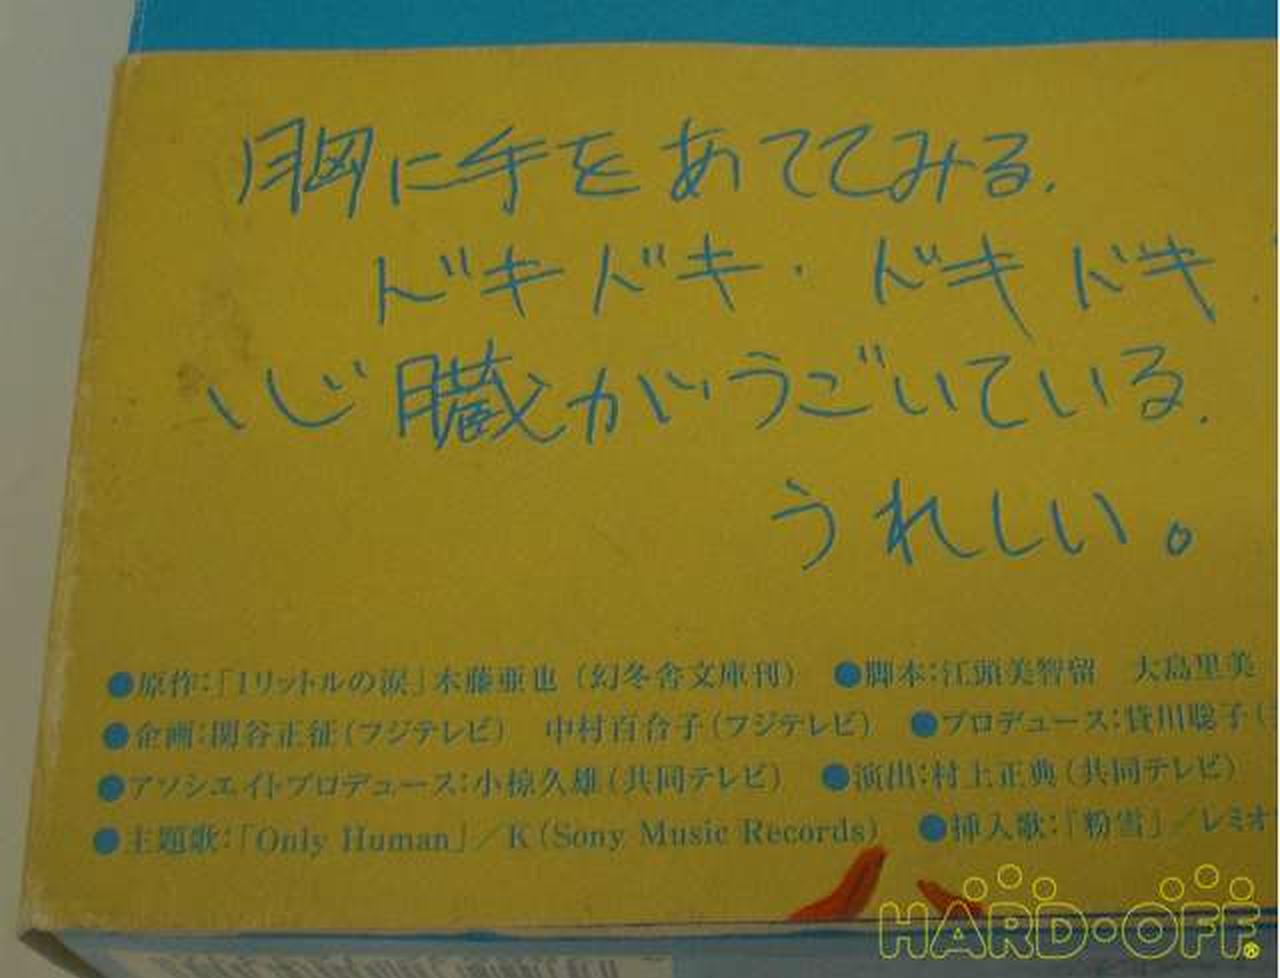 胸に手をあててみる.
ドキドキ・ドキドキ
心臓がうごいている.
うれしい。
●原作:「1リットルの涙」木藤亜也(幻冬舎文庫刊) ●脚本:江頭美智留 大島里美
●企画:関谷正征(フジテレビ) 中村百合子(フジテレビ) ●プロデュース:貸川聡子(
●アソシエイトプロデュース:小椋久雄(共同テレビ) ●演出:村上正典(共同テレビ)
●主題歌:「Only Human」/K(Sony Music Records) ●挿入歌:「粉雪」/レミオ
HARD・OFF®